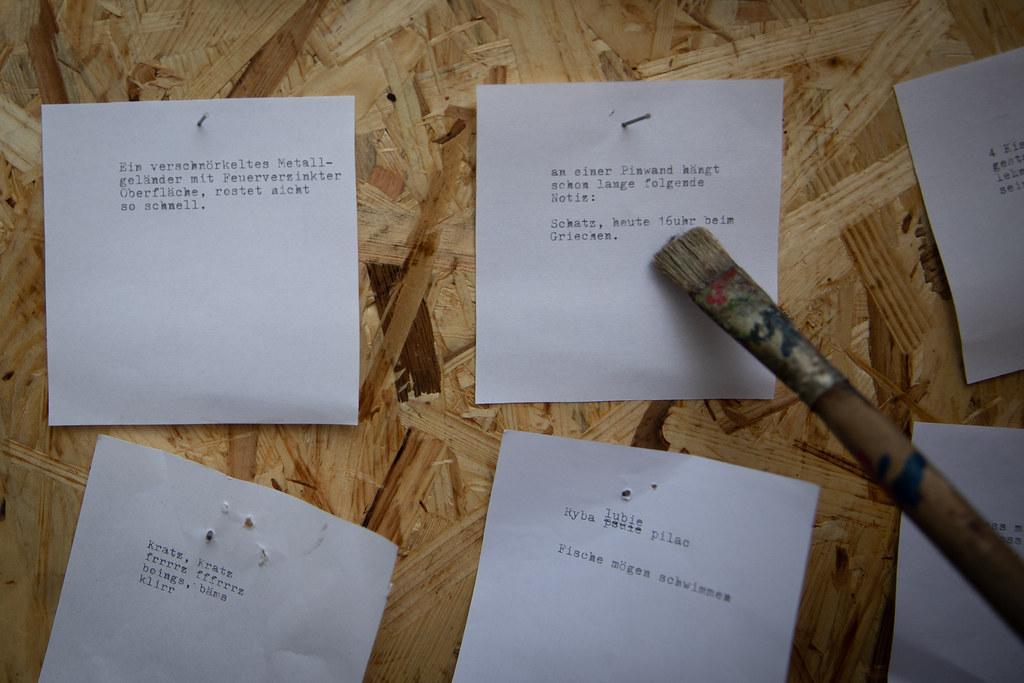 Ein verschnörkeltes Metall-
geländer mit Feuerverzinkter
Oberfläche, rostet nicht
so schnell.
an einer Pinwand hängt
schon lange folgende
Notiz:
Schatz, heute 16uhr beim
Griechen.
4 Eis
Kratz, kratz
frrrrz fffrrrz
boings, bäms
klirr
lubie
Ryba psuie pilac
Fische mögen schwimmen